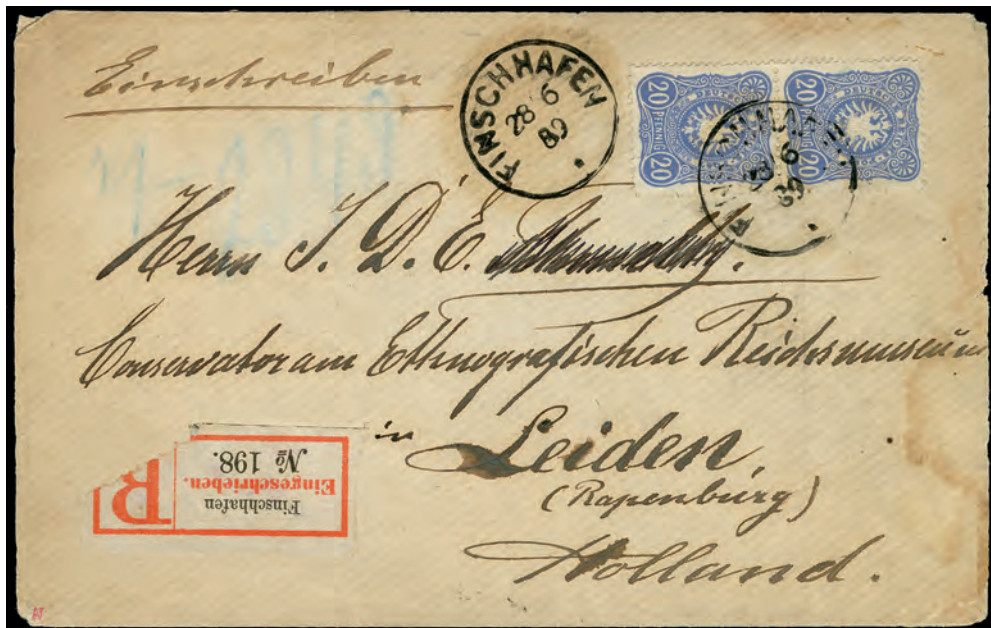 Einschreiben
FINSCHHAFEN
28 6
89
20 PFENNIG 20
20 20
DEUTSCHE REICHS-POST
28 6
89
Herrn J. D. E.
Conservator am Ethnografischen Reichsmuseum
in Leiden,
(Rapenburg)
Holland.
R
Finschhafen
Eingeschrieben.
№ 198.